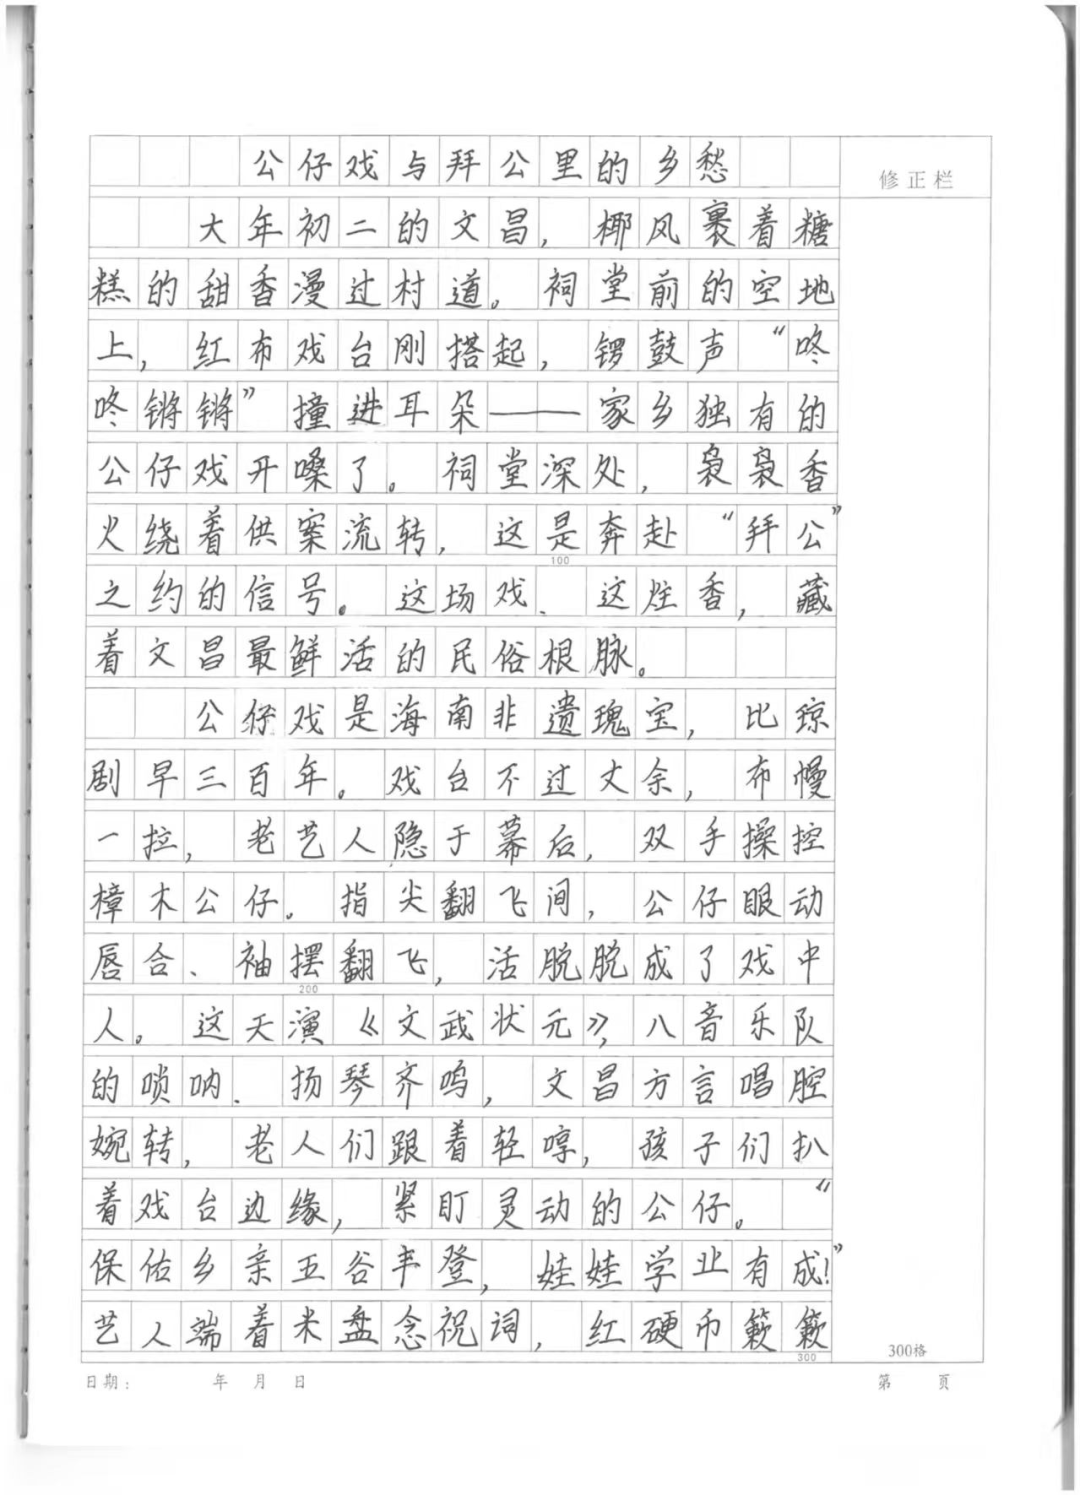 公仔戏与拜公里的乡愁
修正栏
大年初二的文昌，椰风裹着糖
糕的甜香漫过村道。祠堂前的空地
上，红布戏台刚搭起，锣鼓声“咚
咚锵锵”撞进耳朵——家乡独有的
公仔戏开嗓了。祠堂深处，袅袅香
火绕着供案流转，这是奔赴“拜公”
100
之约的信号。这场戏、这炷香，藏
着文昌最鲜活的民俗根脉。
公仔戏是海南非遗瑰宝，比琼
剧早三百年。戏台不过丈余，布幔
一拉，老艺人隐于幕后，双手操控
樟木公仔。指尖翻飞间，公仔眼动
唇合、袖摆翻飞，活脱脱成了戏中
200
人。这天演《文武状元》，八音乐队
的唢呐、扬琴齐鸣，文昌方言唱腔
婉转，老人们跟着轻哼，孩子们扒
着戏台边缘，紧盯灵动的公仔。“
保佑乡亲五谷丰登，娃娃学业有成！”
艺人端着米盘念祝词，红硬币簌簌
300
300格
日期： 年 月 日
第 页